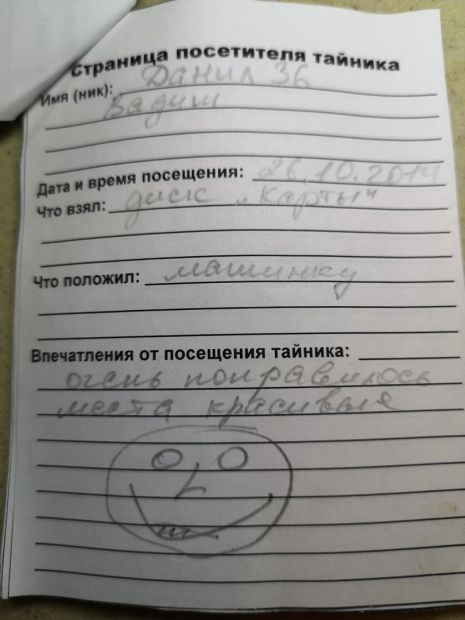 Страница посетителя тайника
Имя (ник): Данил 36
Вадим
Дата и время посещения: 26.10.2014
Что взял: диск „Карты"
Что положил: машинку
Впечатления от посещения тайника:
очень понравилось
места красивые